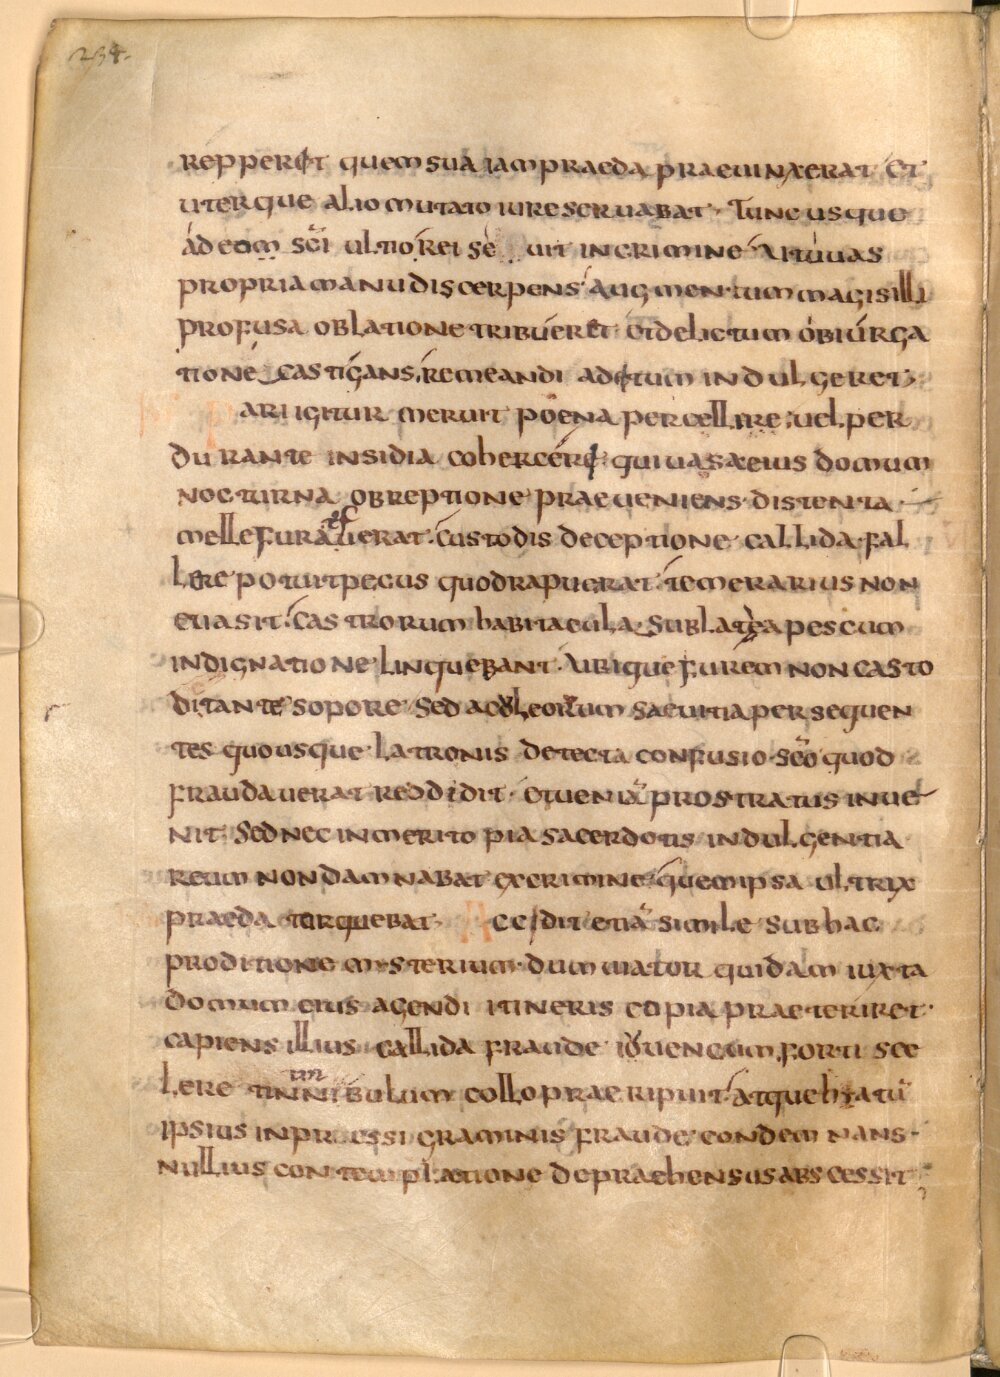 234.
repperit quem sua iam praeda praeuinxerat et
uterque alio mutato iure seruabat. Tunc usque
adeom sc̄i ultio rei se uit in crimine. Ut uuas
propria manu discerpens augmentum magis illi
profusa oblatione tribueret et delictum obiurga
tione castigans, remeandi aditum indulgeret.
ari igitur meruit poena percellere uel per
durante insidia cohercere qui uasa eius domum
nocturna obreptione praeueniens distenta
melle furauerat. Custodis deceptione callida fal
lere potuit pecus quod rapuerat. Temerarius non
euasit. Castrorum habitacula sublata apes cum
indignatione linquebant. Ubique furem non casto
ditante sopore sed aculeorum saeuitia persequen
tes quousque latronis detecta confusio sc̄o quod
fraudauerat reddidit. et uenia prostratus inue
nit. Sed nec inmerito pia sacerdotis indulgentia
reum non damnabat ex crimine quem ipsa ultrix
praeda torquebat. Accidit etiā simile sub hac
proditione mysterium. dum uiator quidam iuxta
domum eius agendi itineris copia praeteriret.
capiens illius callida fraude iuuencum forti sce
lere tinnibulum collo praeripuit atque hiatū
ipsius inpressi graminis fraude condemnans
nullius contemplatione depraehensus abscessit